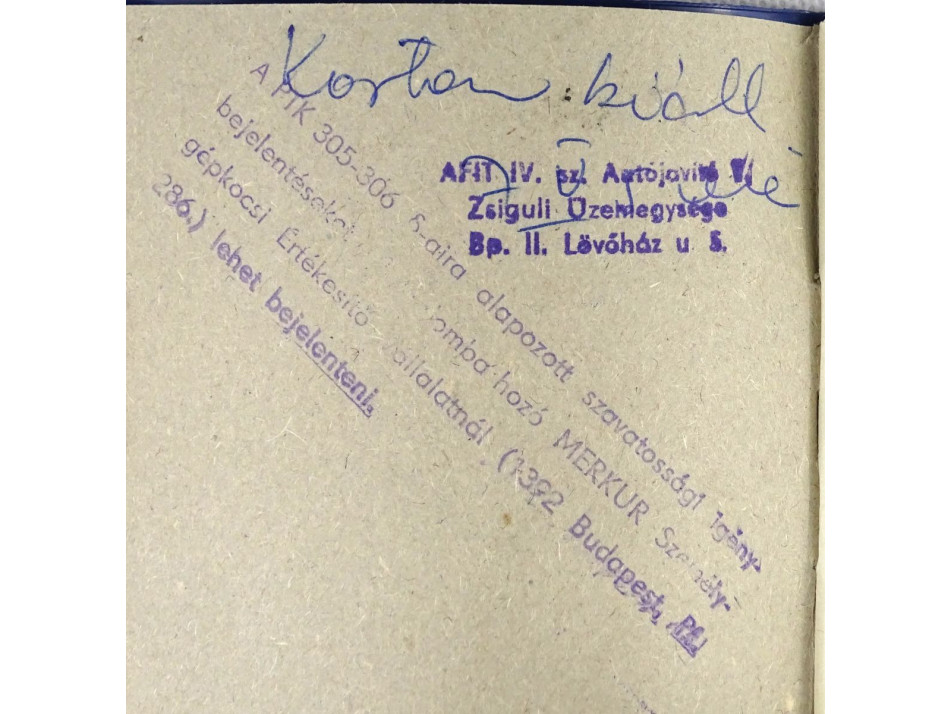 AFIT IV. sz. Autójavító V.
Zsiguli Üzemegysége
Bp. II. Lövőház u 5.
A PTK 305-306 §-aira alapozott szavatossági igény-
bejelentéseket hozó MERKUR Személy-
gépkocsi Értékesítő Vállalatnál (1392 Budapest, Pf.
286.) lehet bejelenteni.